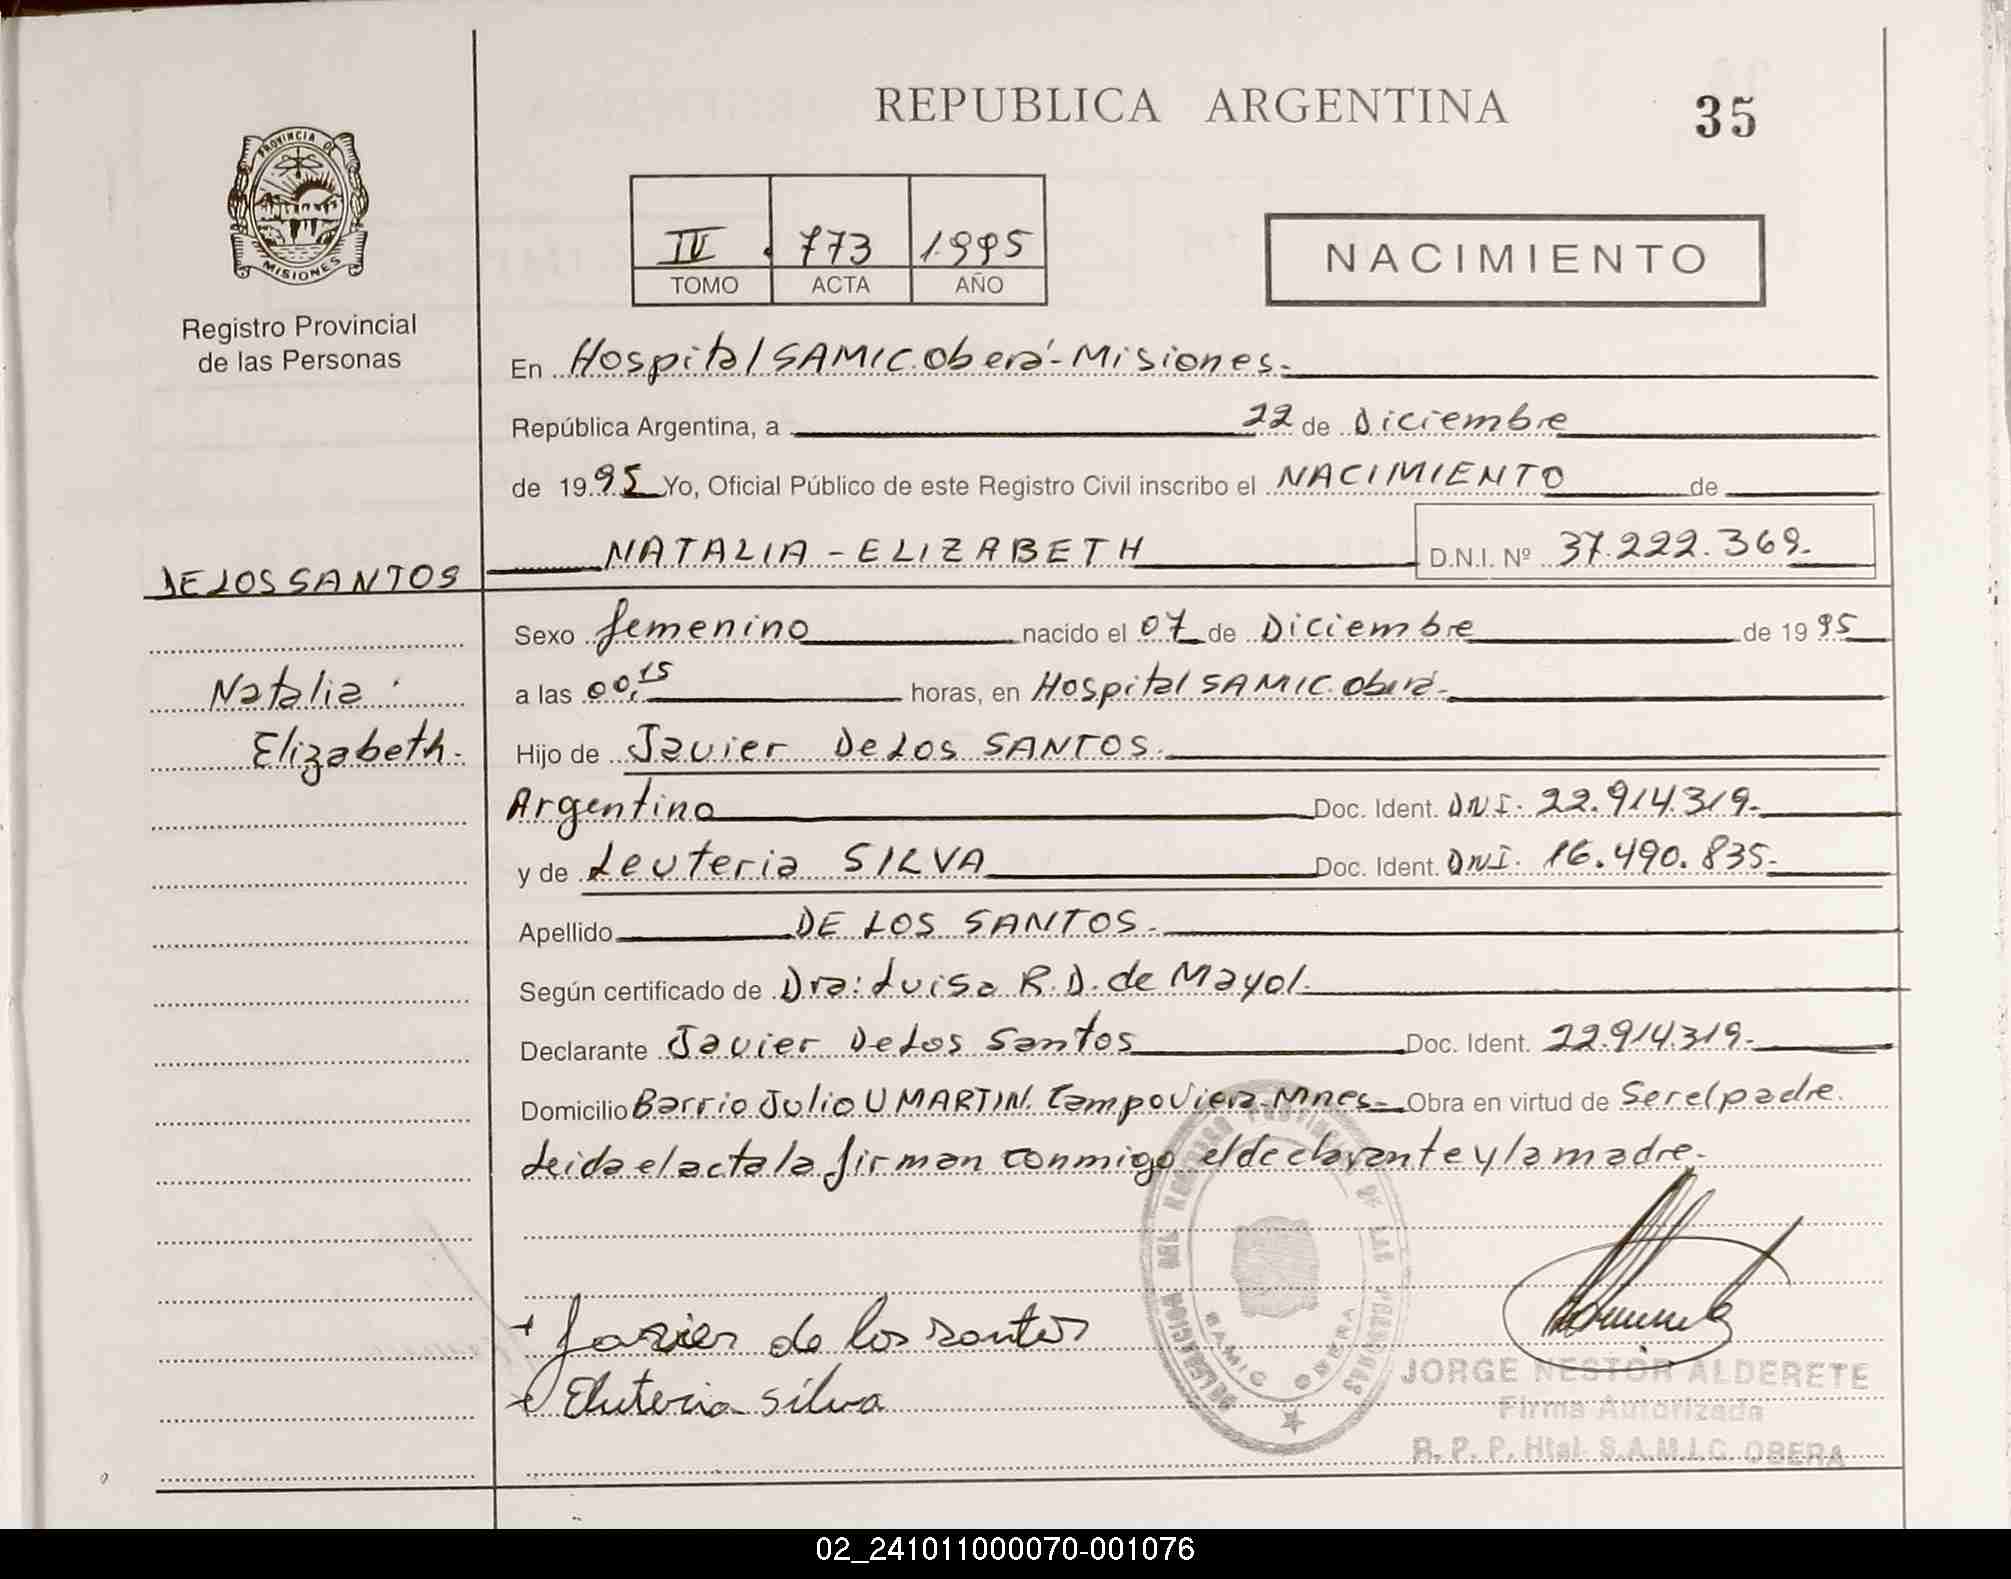 REPUBLICA ARGENTINA
35
PROVINCIA DE
MISIONES
Registro Provincial
de las Personas
IV . 773 1.995
TOMO ACTA AÑO
NACIMIENTO
En Hospital SAMIC. Oberá - Misiones.
República Argentina, a 22 de Diciembre
de 1995 Yo, Oficial Público de este Registro Civil inscribo el NACIMIENTO de
NATALIA - ELIZABETH D.N.I. Nº 37.222.369.
DE LOS SANTOS
Natalia
Elizabeth.
Sexo femenino nacido el 07 de Diciembre de 1995
a las 00,15 horas, en Hospital SAMIC. Oberá.
Hijo de Javier De Los SANTOS.
Argentino Doc. Ident. DNI. 22.914.319.
y de Leuteria SILVA Doc. Ident. DNI. 16.490.835.
Apellido DE LOS SANTOS.
Según certificado de Dra: Luisa R.D. de Mayol.
Declarante Javier De Los Santos Doc. Ident. 22.914.319.
Domicilio Barrio Julio U MARTIN. Campo Viera - Mnes. Obra en virtud de Ser el padre.
Leida el acta la firman conmigo el declarante y la madre.
DELEGACION DEL REGISTRO PROVINCIAL DE LAS PERSONAS
SAMIC OBERA
+ Javier de los santos
+ Eluteria silva
JORGE NESTOR ALDERETE
Firma Autorizada
R. P. P. Htal. S.A.M.I.C. OBERA
02_241011000070-001076